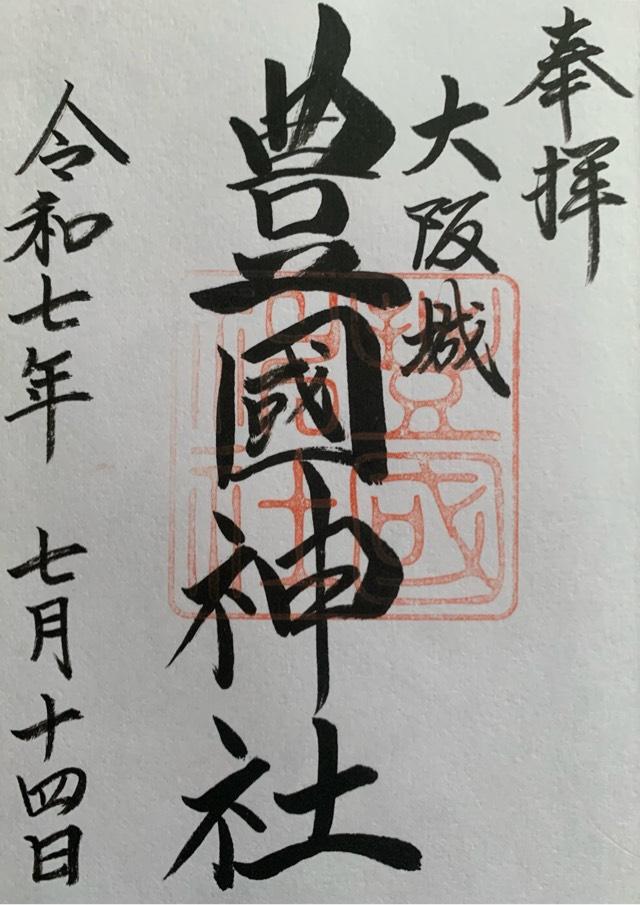 奉拝
大阪城
豊國神社
令和七年 七月十四日